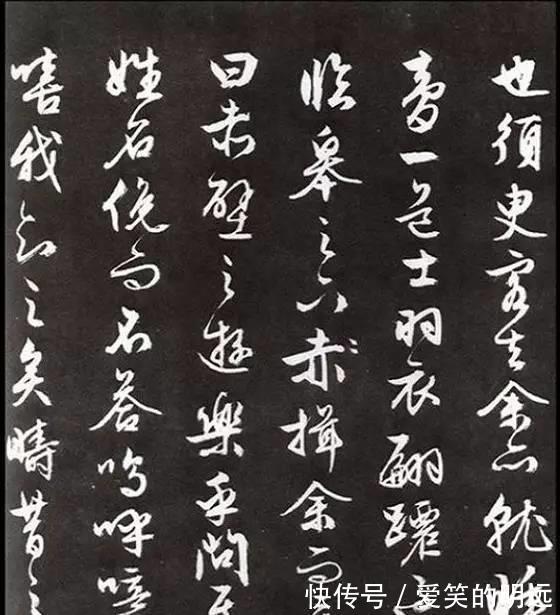 也須臾客去余亦就
夢一道士羽衣翩躚
臨皋之下赤揖余而
曰赤壁之遊樂乎問其
姓名俛而不答嗚呼噫
嘻我知之矣疇昔之
快传号 / 爱笑的明远